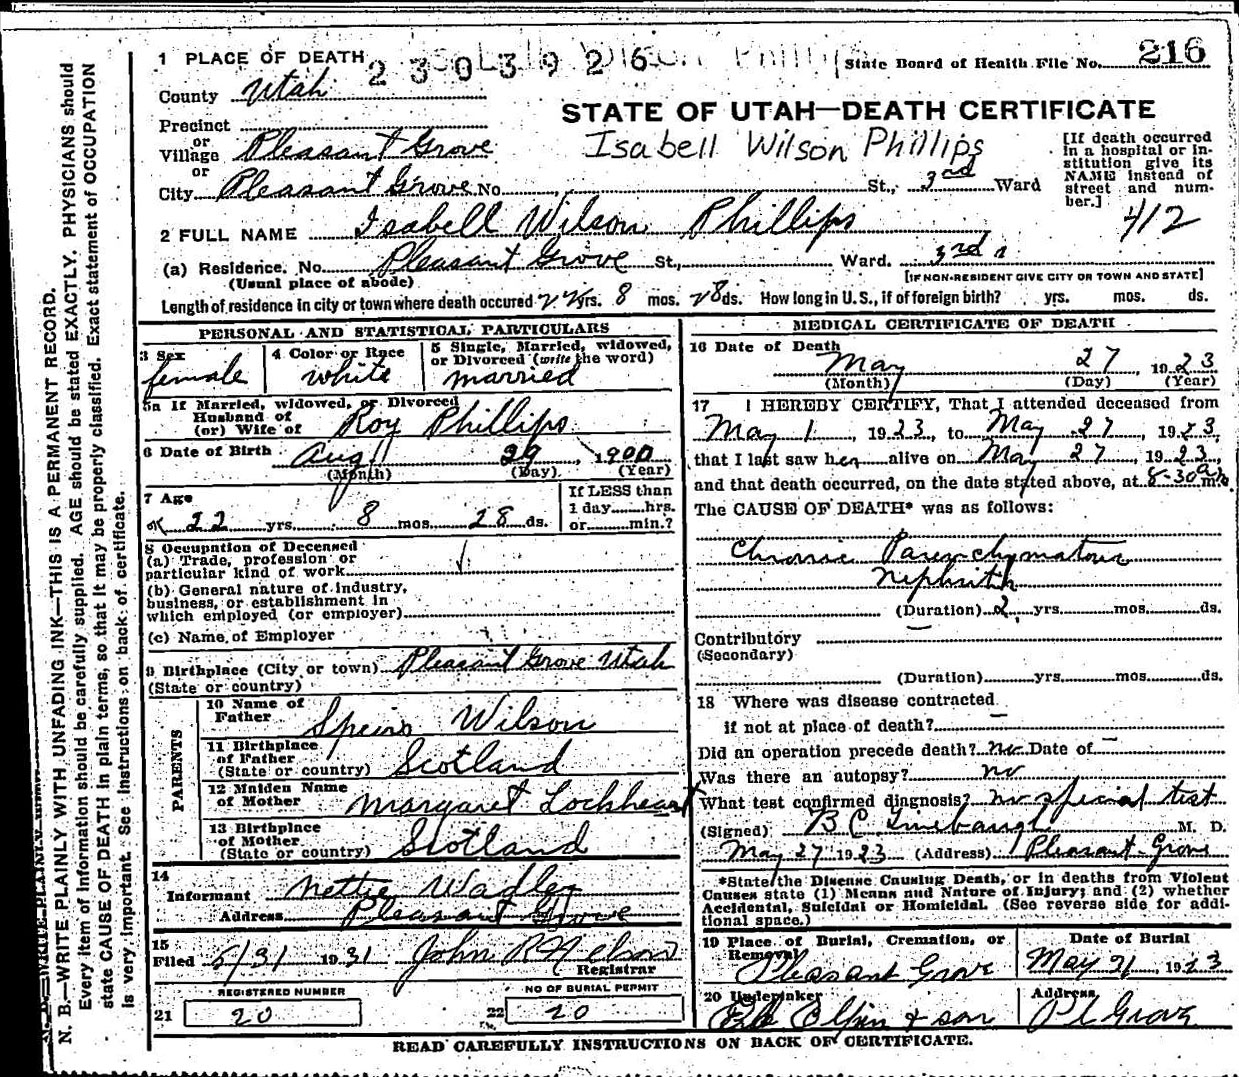 1 PLACE OF DEATH 2303926
State Board of Health File No. 216
County Utah
STATE OF UTAH—DEATH CERTIFICATE
Precinct
or
Village Pleasant Grove
or
City Pleasant Grove No. St., 3rd Ward
Isabell Wilson Phillips
[If death occurred in a hospital or institution give its NAME instead of street and number.]
412
2 FULL NAME Isabell Wilson Phillips
(a) Residence. No. Pleasant Grove St., Ward. 3rd
(Usual place of abode)
[IF NON-RESIDENT GIVE CITY OR TOWN AND STATE]
Length of residence in city or town where death occured 22 yrs. 8 mos. 28 ds. How long in U.S., if of foreign birth? yrs. mos. ds.
PERSONAL AND STATISTICAL PARTICULARS
3 Sex
female
4 Color or Race
white
5 Single, Married, widowed, or Divorced (write the word)
married
5a If Married, widowed, or Divorced
Husband of
(or) Wife of Roy Phillips
6 Date of Birth Aug 29, 1900
(Month) (Day) (Year)
7 Age
22 yrs. 8 mos. 28 ds.
If LESS than
1 day hrs.
or min.?
8 Occupation of Deceased
(a) Trade, profession or
particular kind of work
(b) General nature of industry,
business, or establishment in
which employed (or employer)
(c) Name of Employer
9 Birthplace (City or town) Pleasant Grove Utah
(State or country)
PARENTS
10 Name of
Father Wilson
11 Birthplace
of Father
(State or country) Scotland
12 Maiden Name
of Mother Margaret Lockheart
13 Birthplace
of Mother
(State or country) Scotland
14
Informant Nettie Wadley
Address Pleasant Grove
15
Filed 5/31 1931 John Nelson
Registrar
REGISTERED NUMBER
21 20
NO OF BURIAL PERMIT
22 20
MEDICAL CERTIFICATE OF DEATH
16 Date of Death
May 27, 1923
(Month) (Day) (Year)
17 I HEREBY CERTIFY, That I attended deceased from
May 1, 1923, to May 27, 1923,
that I last saw her alive on May 27, 1923,
and that death occurred, on the date stated above, at 8-30 a m.
The CAUSE OF DEATH* was as follows:
Chronic Parenchymatous
Nephritis
(Duration) 2 yrs. mos. ds.
Contributory
(Secondary)
(Duration) yrs. mos. ds.
18 Where was disease contracted
if not at place of death?
Did an operation precede death? no Date of —
Was there an autopsy? no
What test confirmed diagnosis? no special test
(Signed) B C M. D.
May 27 1923 (Address) Pleasant Grove
*State the Disease Causing Death, or in deaths from Violent
Causes state (1) Means and Nature of Injury; and (2) whether
Accidental, Suicidal or Homicidal. (See reverse side for addi-
tional space.)
19 Place of Burial, Cremation, or
Removal Pleasant Grove
Date of Burial
May 1923
20 Undertaker
& son
Address
Pl Grove
READ CAREFULLY INSTRUCTIONS ON BACK OF CERTIFICATE.
N. B.—WRITE PLAINLY WITH UNFADING INK—THIS IS A PERMANENT RECORD.
Every item of information should be carefully supplied. AGE should be stated EXACTLY. PHYSICIANS should
state CAUSE OF DEATH in plain terms, so that it may be properly classified. Exact statement of OCCUPATION
is very important. See instructions on back of certificate.